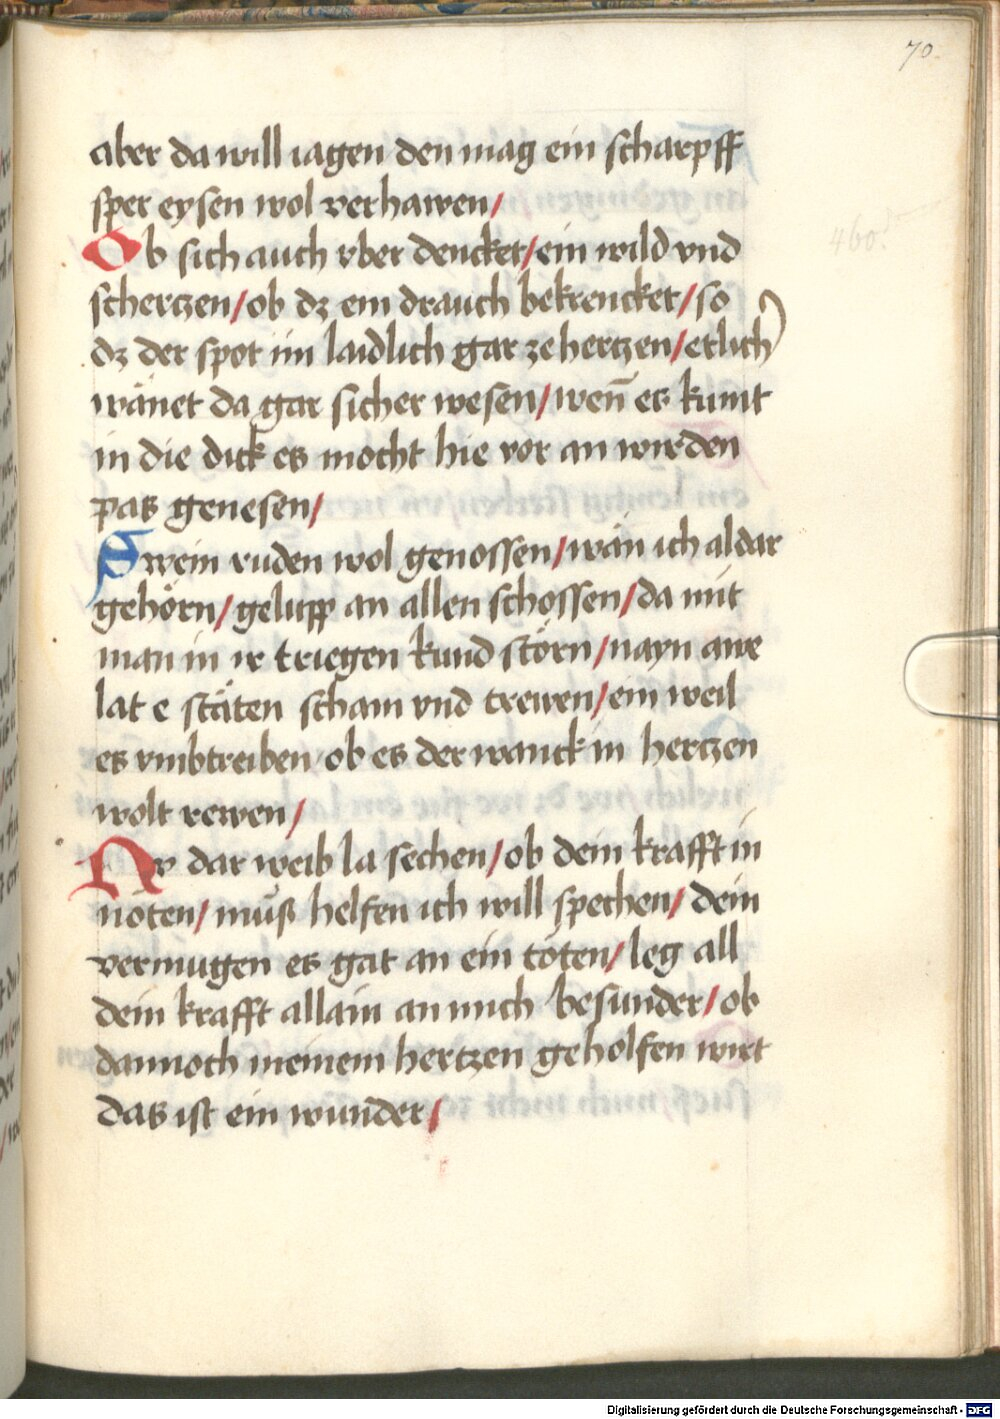 70.
aber da will iagen den mag ein scharpff
sper eysen wol verhawen/
460.
Ob sich auch vber dencket/ein wild vnd
schertzen/ob dz ein drauch bekrencket/so
dz der spot im laidlich gar ze hertzen/etlich
wänet da gar sicher wesen/wen̄ es kumt
in die dick es mocht hie vor an wirden
pas genesen/
Swein ruden wol genossen/wän ich aldar
gehörn/gelupp an allen schossen/da mit
man in ir triegen kund störn/nayn awe
lat e stäten scham vnd trewen/ein weil
es vmbtreiben ob es der wanck in hertzen
wolt rewen/
Nv dar weib la sechen/ob dein krafft in
nöten/muß helfen ich will spechen/dein
vermugen es gat an ein töten/leg all
dein krafft allain an mich besunder/ob
dannoch meinem hertzen geholfen wirt
das ist ein wunder/
Digitalisierung gefördert durch die Deutsche Forschungsgemeinschaft - DFG